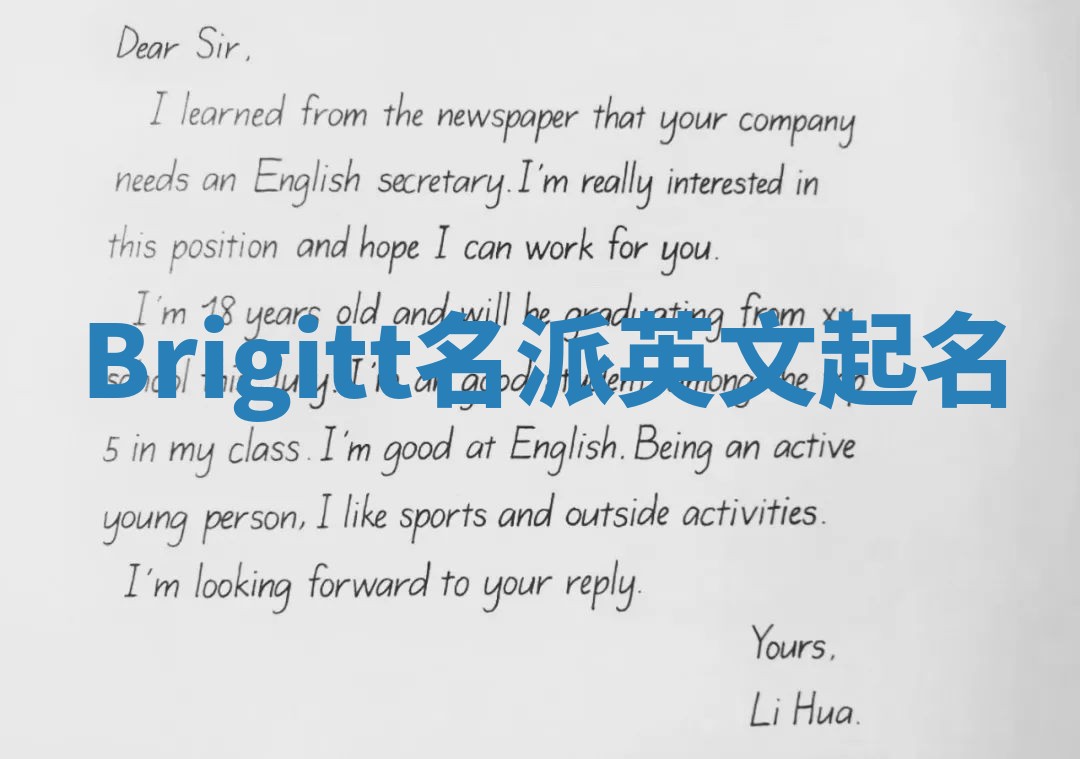 Dear Sir,
I learned from the newspaper that your company
needs an English secretary. I'm really interested in
this position and hope I can work for you.
I'm 18 years old and will be graduating from xx
Brigitt名派英文起名
school this July. I'm a good student among the top
5 in my class. I'm good at English. Being an active
young person, I like sports and outside activities.
I'm looking forward to your reply.
Yours,
Li Hua.